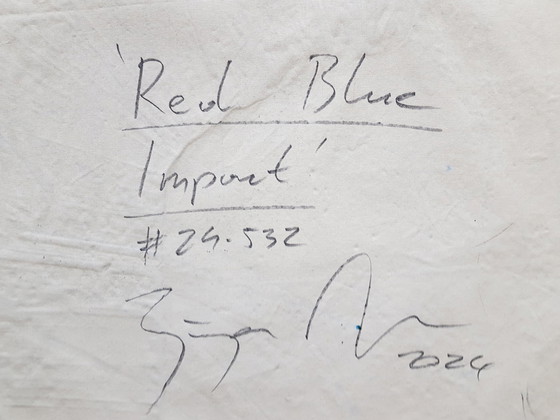 'Red Blue
Impact'
#24.532
2024